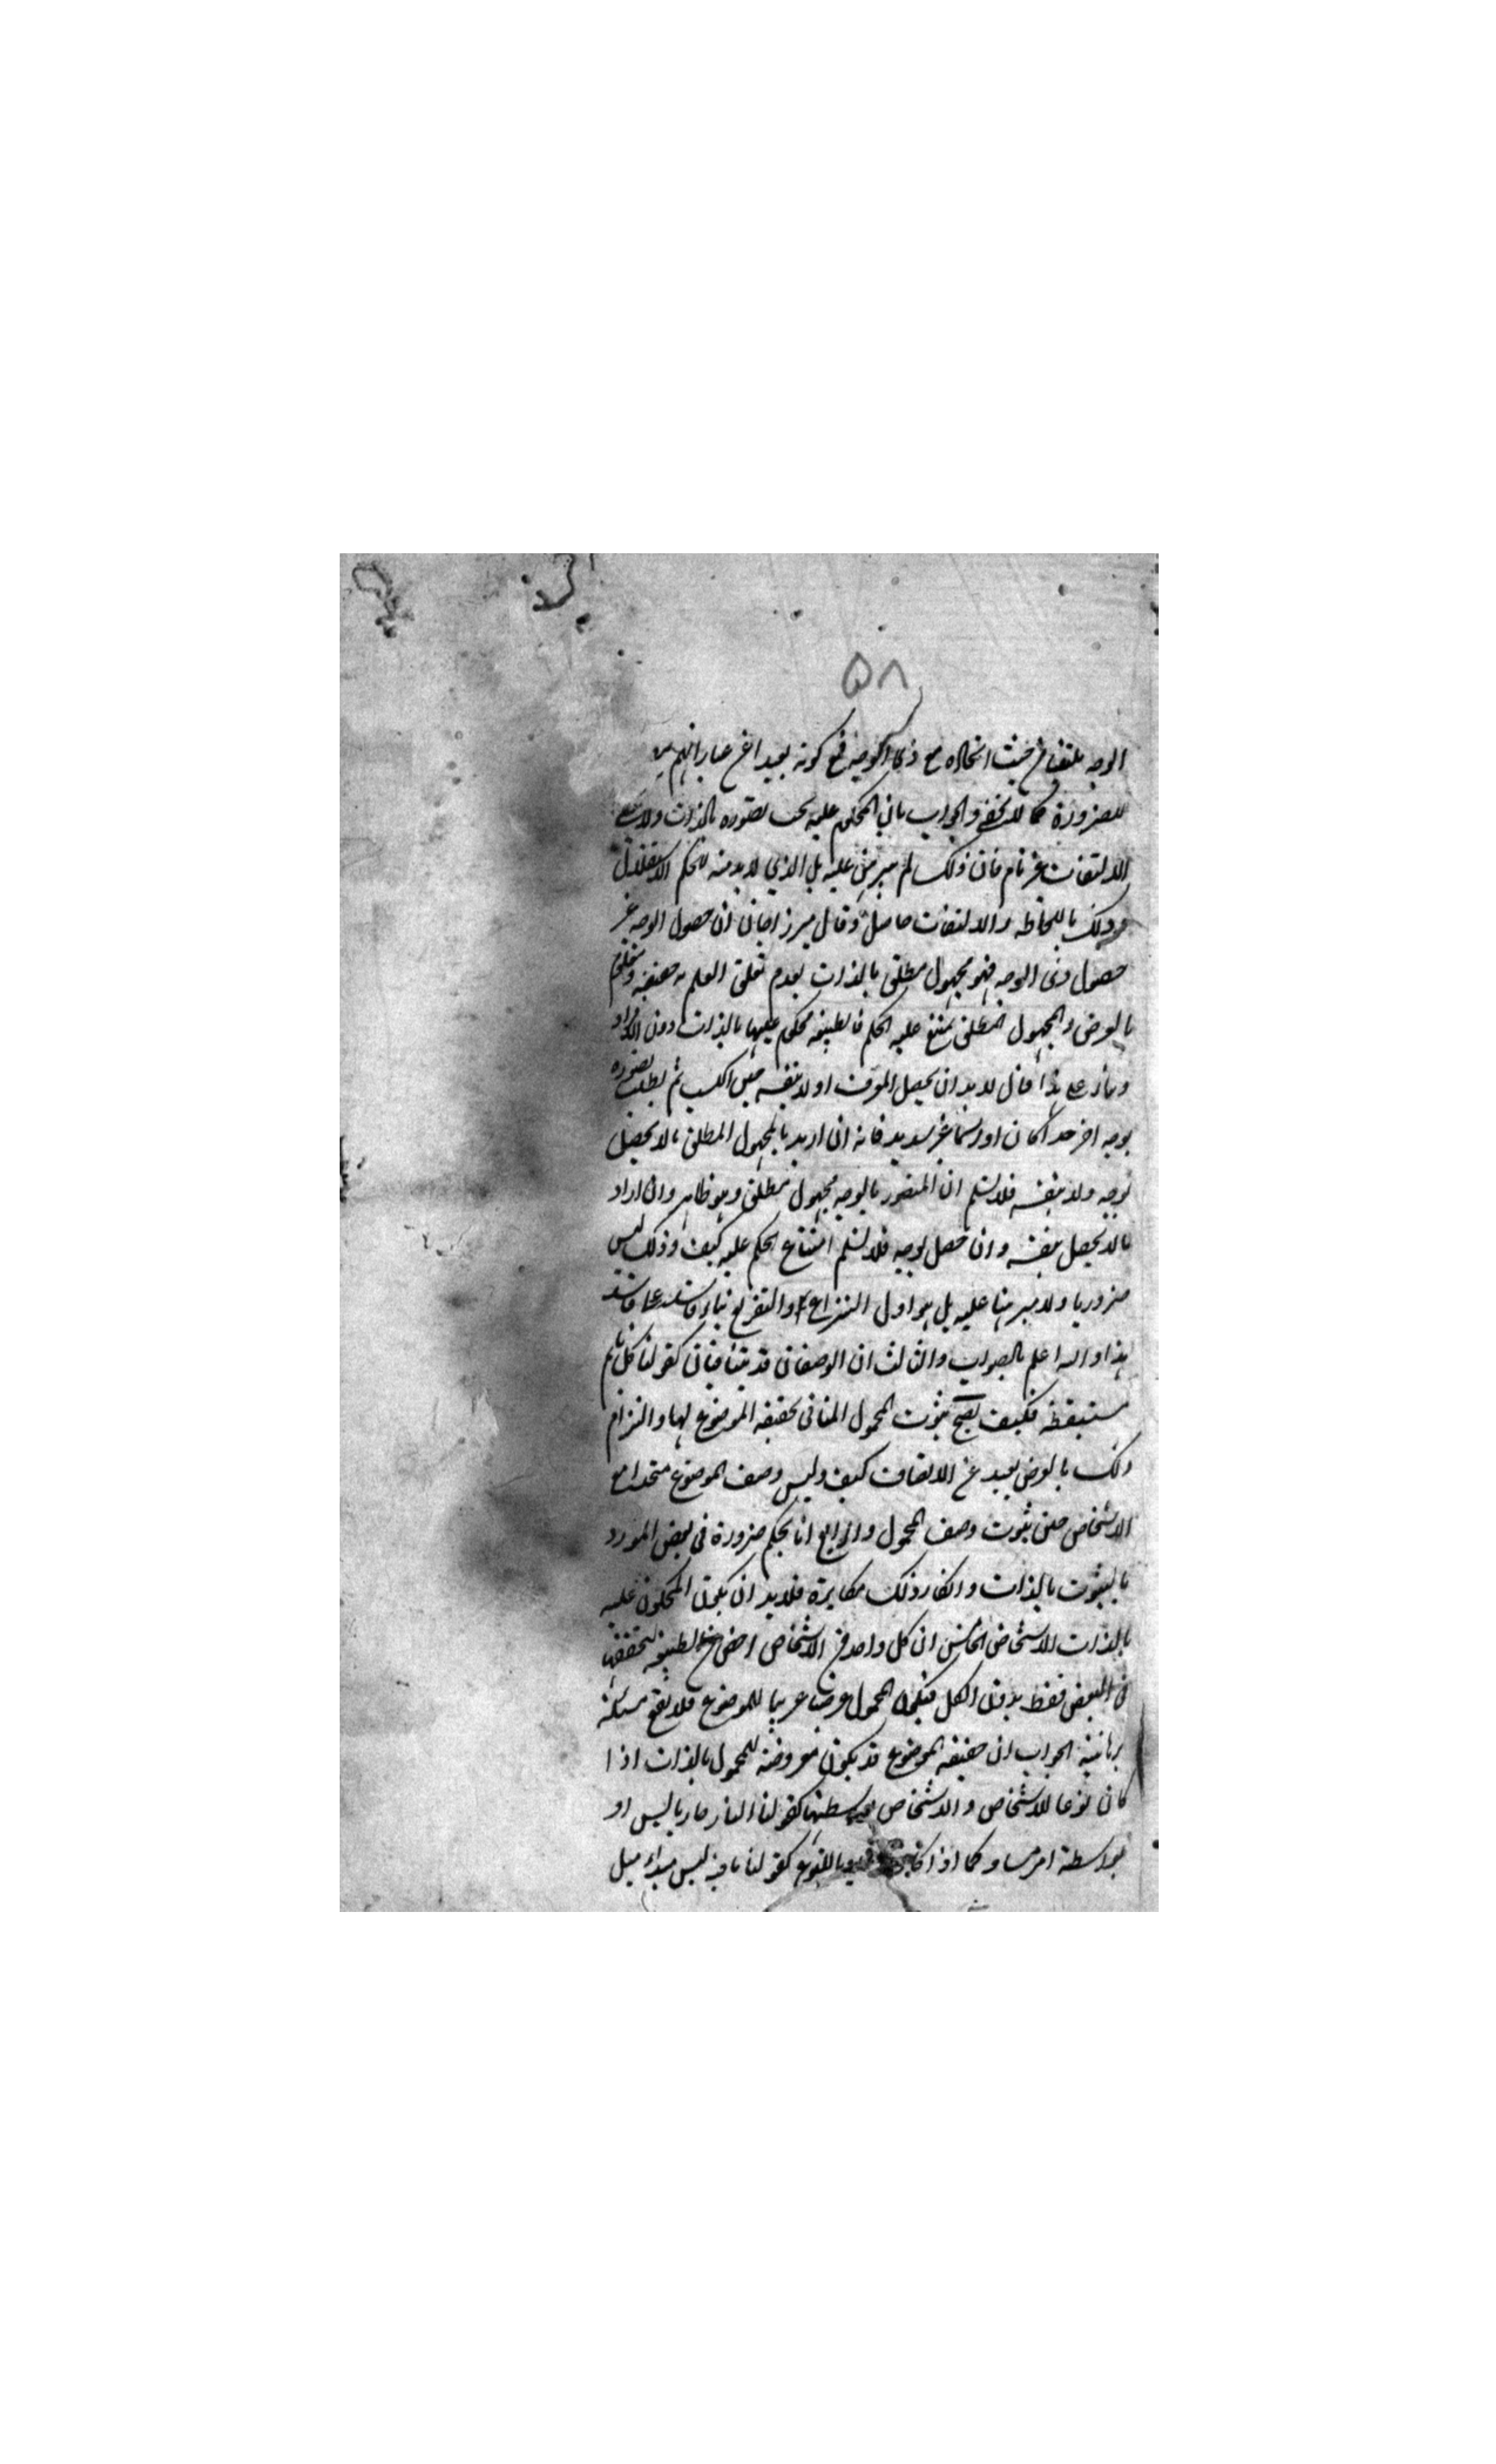 ٥٨
الوجه ملتفتا من حيث اتحاده مع ذي الوجه فمع كونه بعيدا عن عباراتهم
للضرورة كما لا يخفى والجواب بان المحكوم عليه يجب تصوره بالذات ولا
الالتفات غير تام فان ذلك لم يبرهن عليه بل الذي لا بد منه للحكم الاستقلال
وذلك باللحاظ والالتفات حاصل وقال ميرزا جان ان حصول الوجه غير
حصول ذي الوجه فهو مجهول مطلق بالذات لعدم تعلق العلم به حقيقة
بالعرض والمجهول المطلق يمتنع عليه الحكم فالطبيعة محكوم عليها بالذات دون الافراد
هذا فان لا بد ان يحصل المعرف اولا بنفسه حين الكسب ثم يطلب تصوره
بوجه اخر حدا كان او رسما غير سديد فانه ان اريد بالمجهول المطلق ما لا يحصل
بوجه ولا بنفسه فلا نسلم ان المتصور بالوجه مجهول مطلق وهو ظاهر وان اراد
ما لا يحصل بنفسه وان حصل بوجه فلا نسلم امتناع الحكم عليه كيف وذلك ليس
ضروريا ولا مبرهنا عليه بل هو اول النزاع والتفريع بناء فاسد على فاسد
هذا والله اعلم بالصواب والثالث ان الوصفان قد يتنافيان كقولنا كل نائم
مستيقظ فكيف يصح ثبوت المحمول المنافي لحقيقة الموضوع لها والتزام
ذلك بالعرض بعيد عن الالتفات كيف وليس وصف الموضوع متحدا مع
الاشخاص حين ثبوت وصف المحمول والرابع انا نحكم ضرورة في بعض الموارد
بالثبوت بالذات وانكار ذلك مكابرة فلا بد ان يكون المحكوم عليه
بالذات الاشخاص الخامس ان كل واحد من الاشخاص اخص من الطبيعة لتحققها
في البعض فقط بدون الكل فيكون المحمول عرضا غريبا للموضوع فلا يقع مسئلة
برهانية الجواب ان حقيقة الموضوع قد يكون معروضة للمحمول بالذات اذا
كان نوعا للاشخاص والاشخاص بواسطتها كقولنا النار حار يابس او
بواسطة امر مساو كما اذا كان باللنوع كقولنا ما فيه ليس مبداء ميل